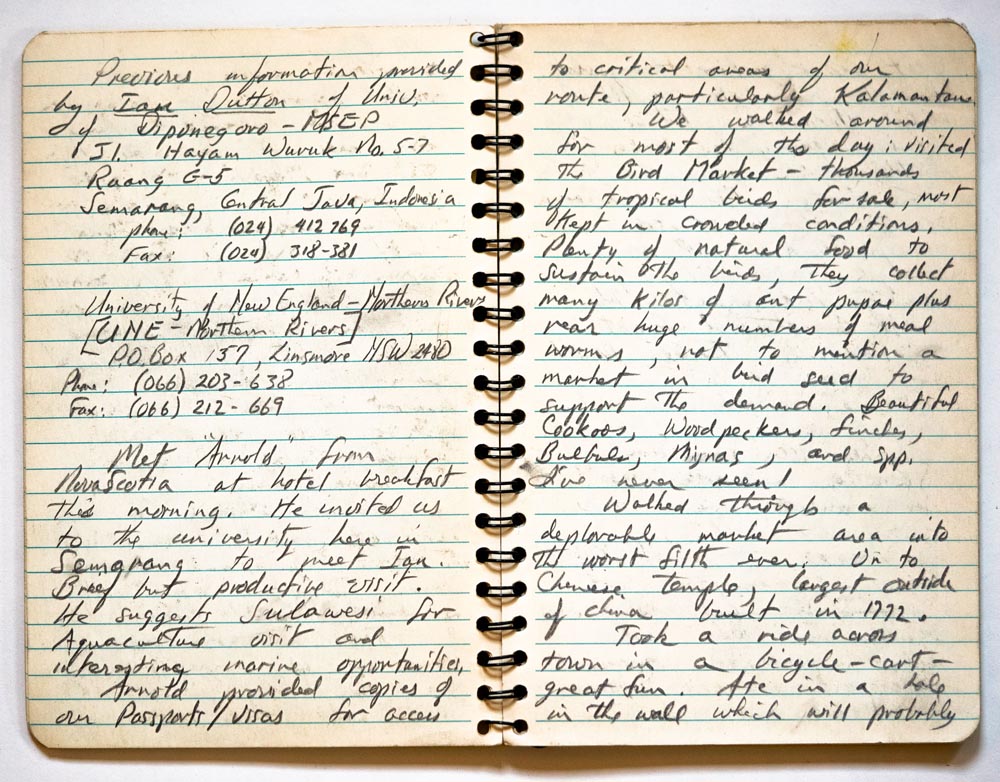 Previous information provided
by Ian Dutton of Univ.
of Diponegoro - MSEP
Jl. Hayam Wuruk No. 5-7
Ruang E-5
Semarang, Central Java, Indonesia
phone: (024) 412 769
Fax: (024) 318-381
University of New England - Northern Rivers
[UNE - Northern Rivers]
P.O. Box 157, Linsmore NSW 2480
Phone: (066) 203-638
Fax: (066) 212-669
Met "Arnold" from
NovaScotia at hotel breakfast
this morning. He invited us
to the university here in
Semarang to meet Ian.
Brief but productive visit.
He suggests Sulawesi for
Aquaculture visit and
interesting marine opportunities,
Arnold provided copies of
our Passports/visas for access
to critical areas of our
route, particularly Kalamantan.
We walked around
for most of the day: visited
the Bird Market - thousands
of tropical birds for sale, most
kept in crowded conditions.
Plenty of natural food to
sustain the birds, They collect
many kilos of ant pupae plus
rear huge numbers of meal
worms, not to mention a
market in bird seed to
support the demand. Beautiful
Cookoos, Woodpeckers, finches,
Bulbuls, Mynas, and spp.
I've never seen!
Walked through a
deplorable market area into
the worst filth ever. On to
Chinese temple, largest outside
of China built in 1772.
Took a ride across
town in a bicycle-cart -
great fun. Ate in a hole
in the wall which will probably